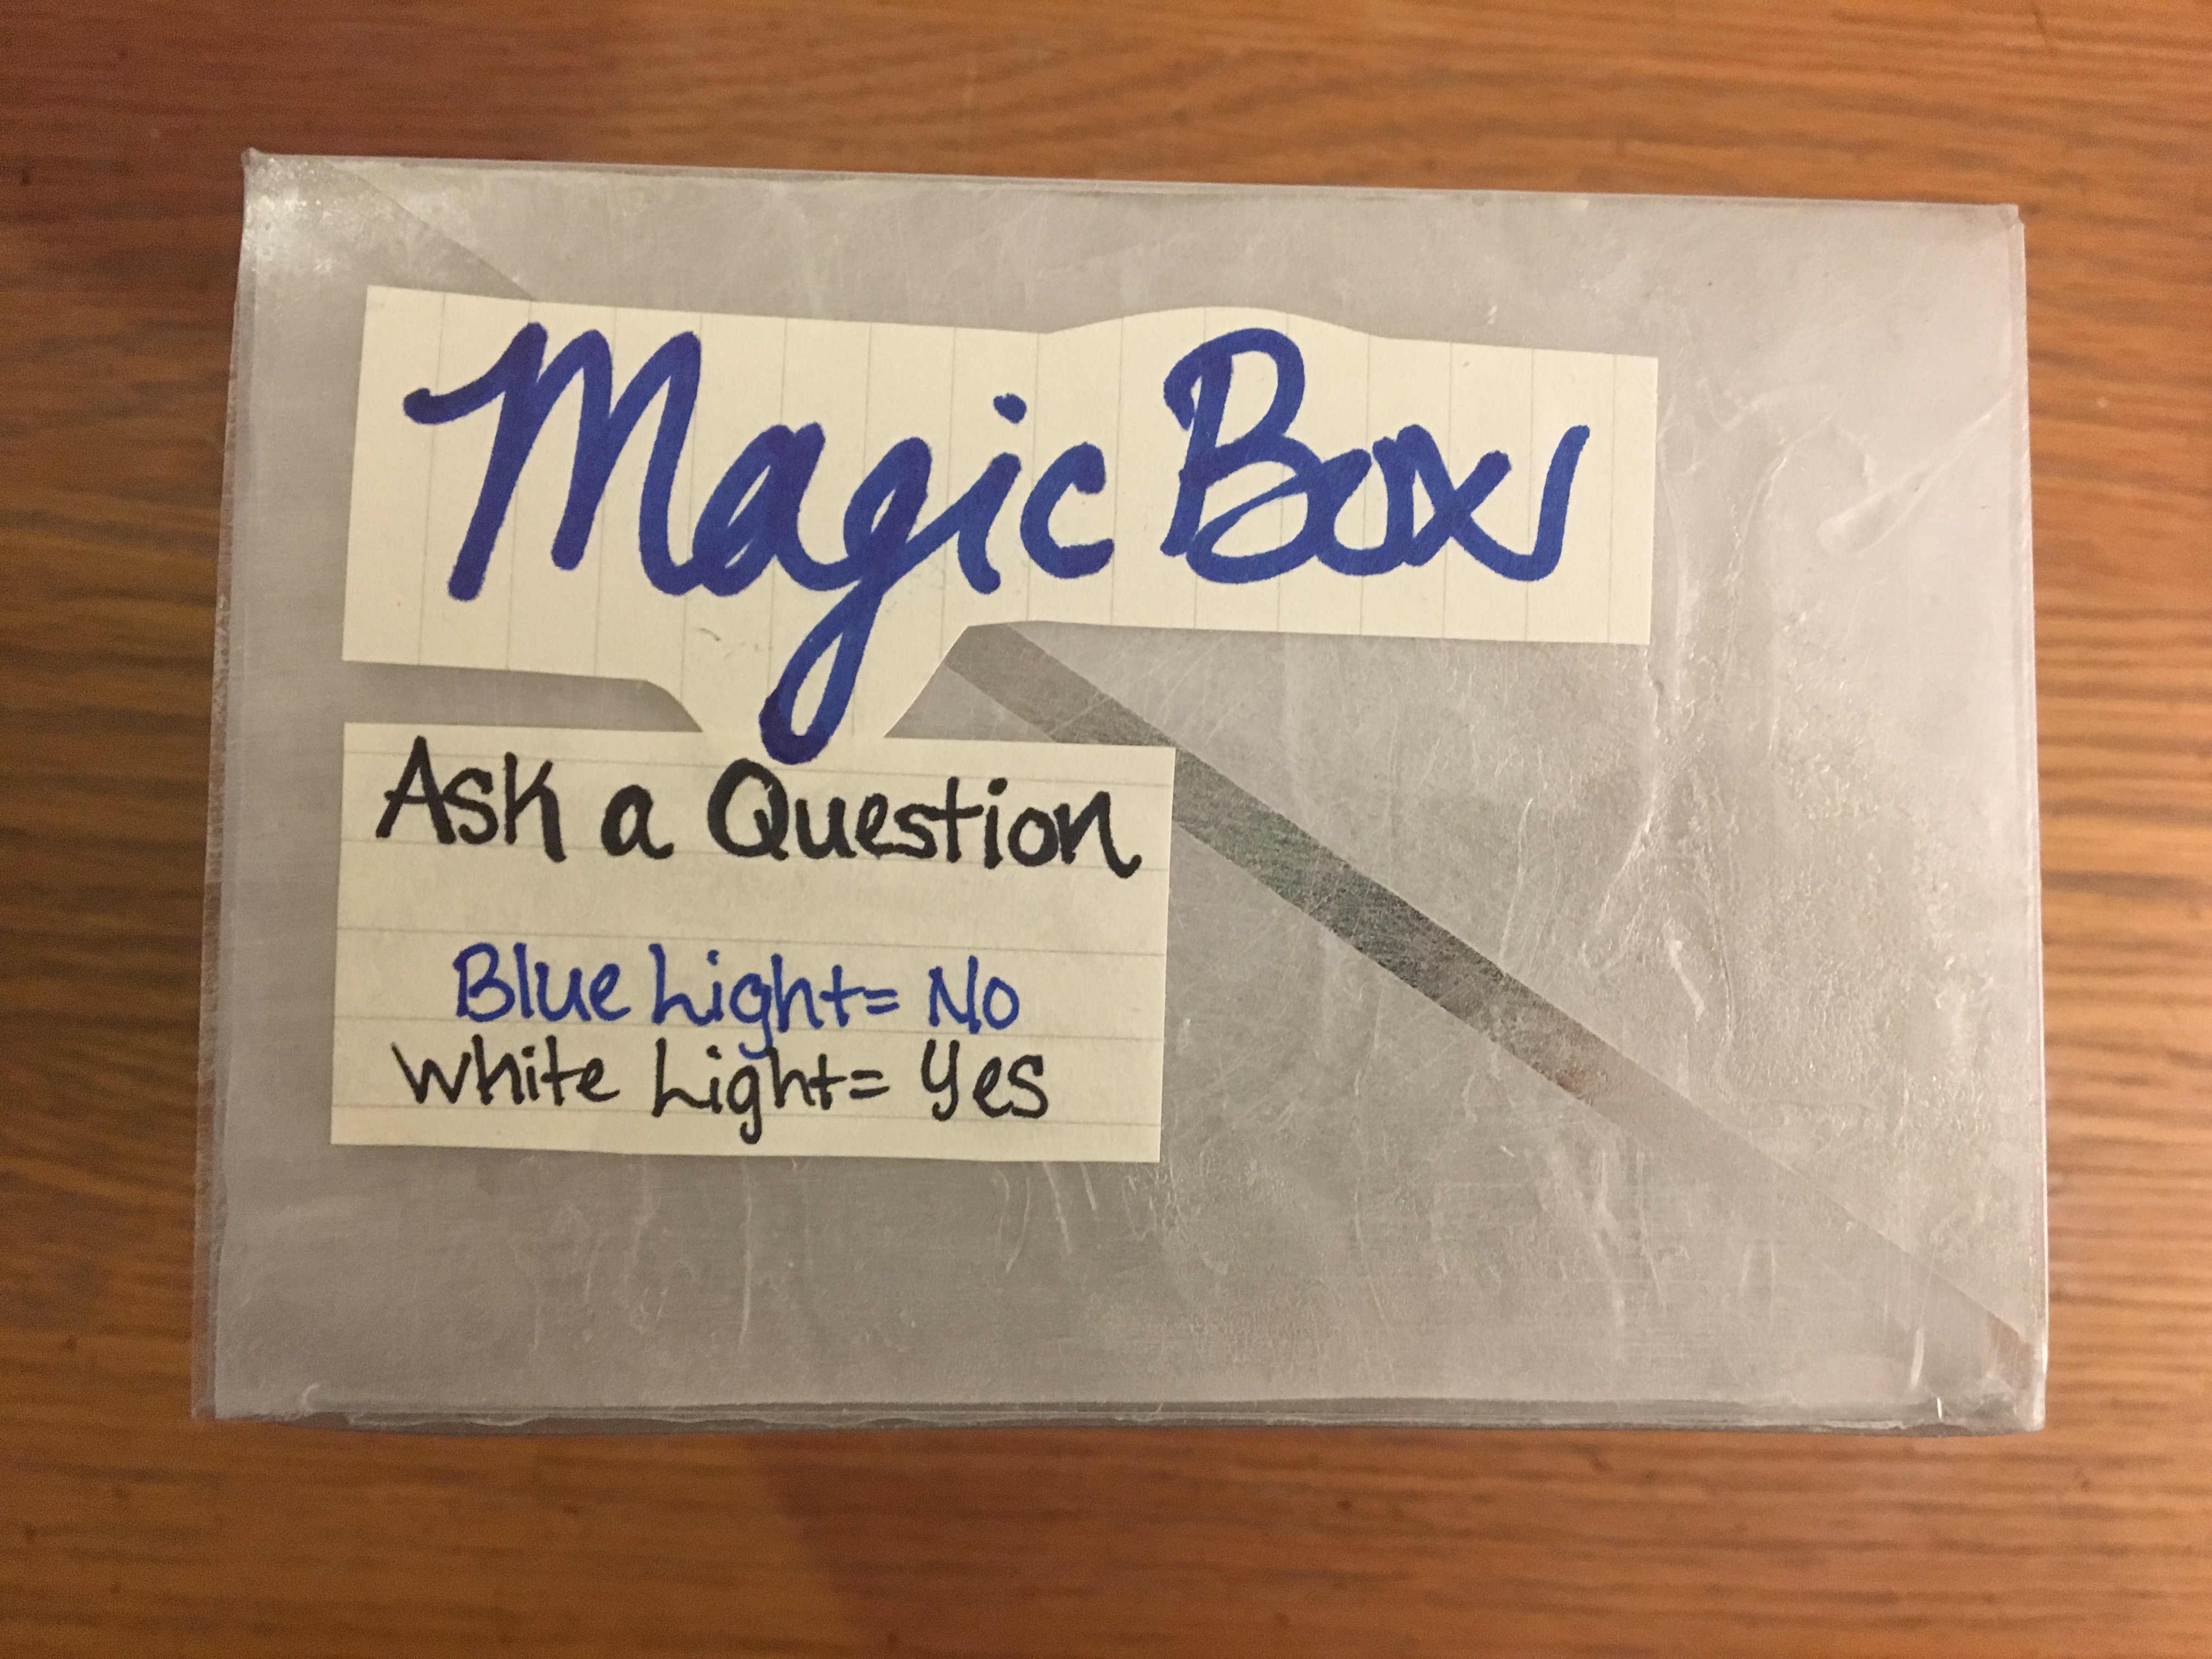 Magic Box
Ask a Question
Blue Light= No
White Light= Yes